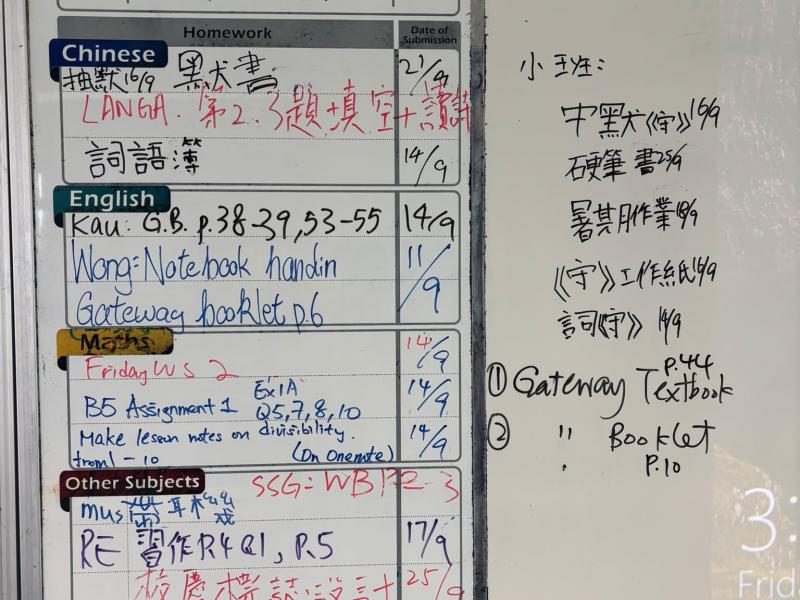 Homework
Date of Submission
Chinese
抽默16/9 默書 21/9
LANGA. 第2.3題填空+讀詩
詞語簿 14/9
English
Kau: G.B. p.38-39,53-55 14/9
Wong: Notebook handin 11/9
Gateway booklet p.6
Maths
Friday WS 2 14/9
B5 Assignment 1 Ex1A Q5,7,8,10 14/9
Make lesson notes on divisibility. 14/9
from 1-10 (On Onenote)
Other Subjects
SSG: WB P2-3
mus
RE 習作P.4 Q1, P.5 17/9
校慶標誌設計 25/9
小班:
中默《守》16/9
硬筆書25/9
暑期作業18/9
《守》工作紙16/9
詞《守》14/9
① Gateway Textbook p.44
② " Booklet
P.10
3:
Frida